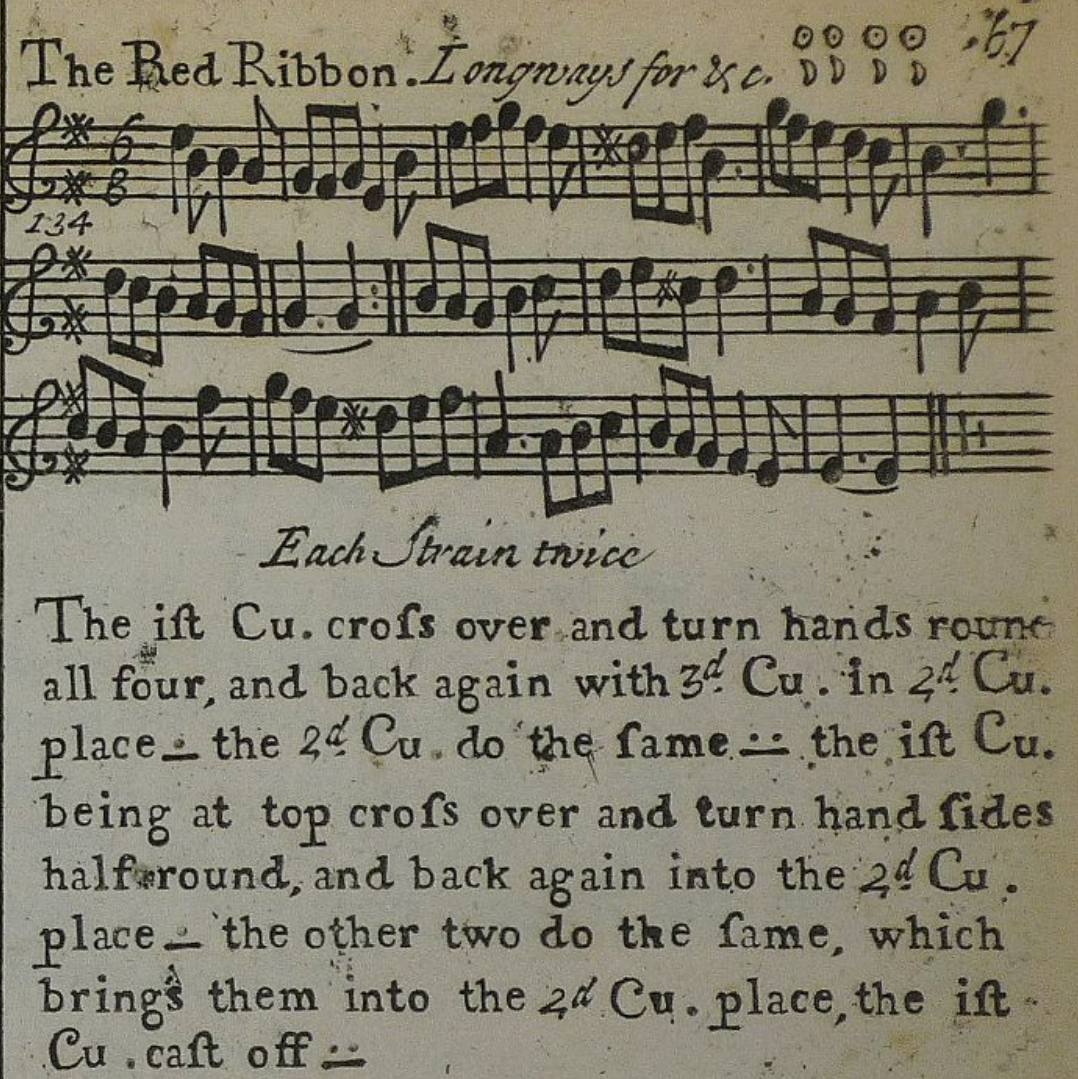 The Red Ribbon. Longways for &c. 67
6
8
134
Each Strain twice
The iſt Cu. croſs over and turn hands round
all four, and back again with 3d Cu. in 2d Cu.
place ∸ the 2d Cu. do the ſame ∺ the iſt Cu.
being at top croſs over and turn hand ſides
half round, and back again into the 2d Cu.
place ∸ the other two do the ſame, which
brings them into the 2d Cu. place, the iſt
Cu. caſt off ∺